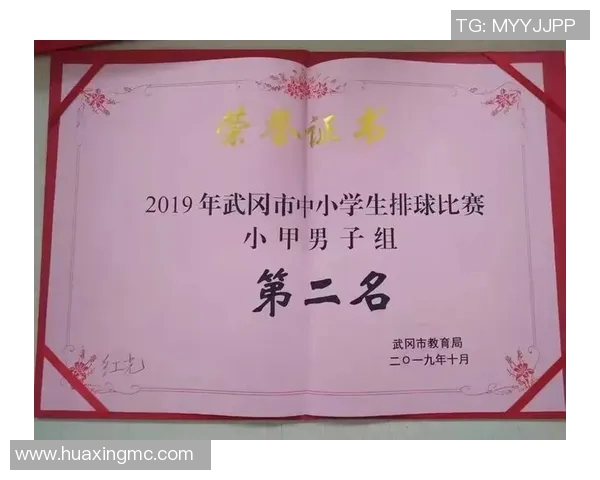 TG: MYYJJPP
荣誉证书
2019年武冈市中小学生排球比赛
小甲男子组
第二名
武冈市教育局
二〇一九年十月
红光
www.huaxingmc.com